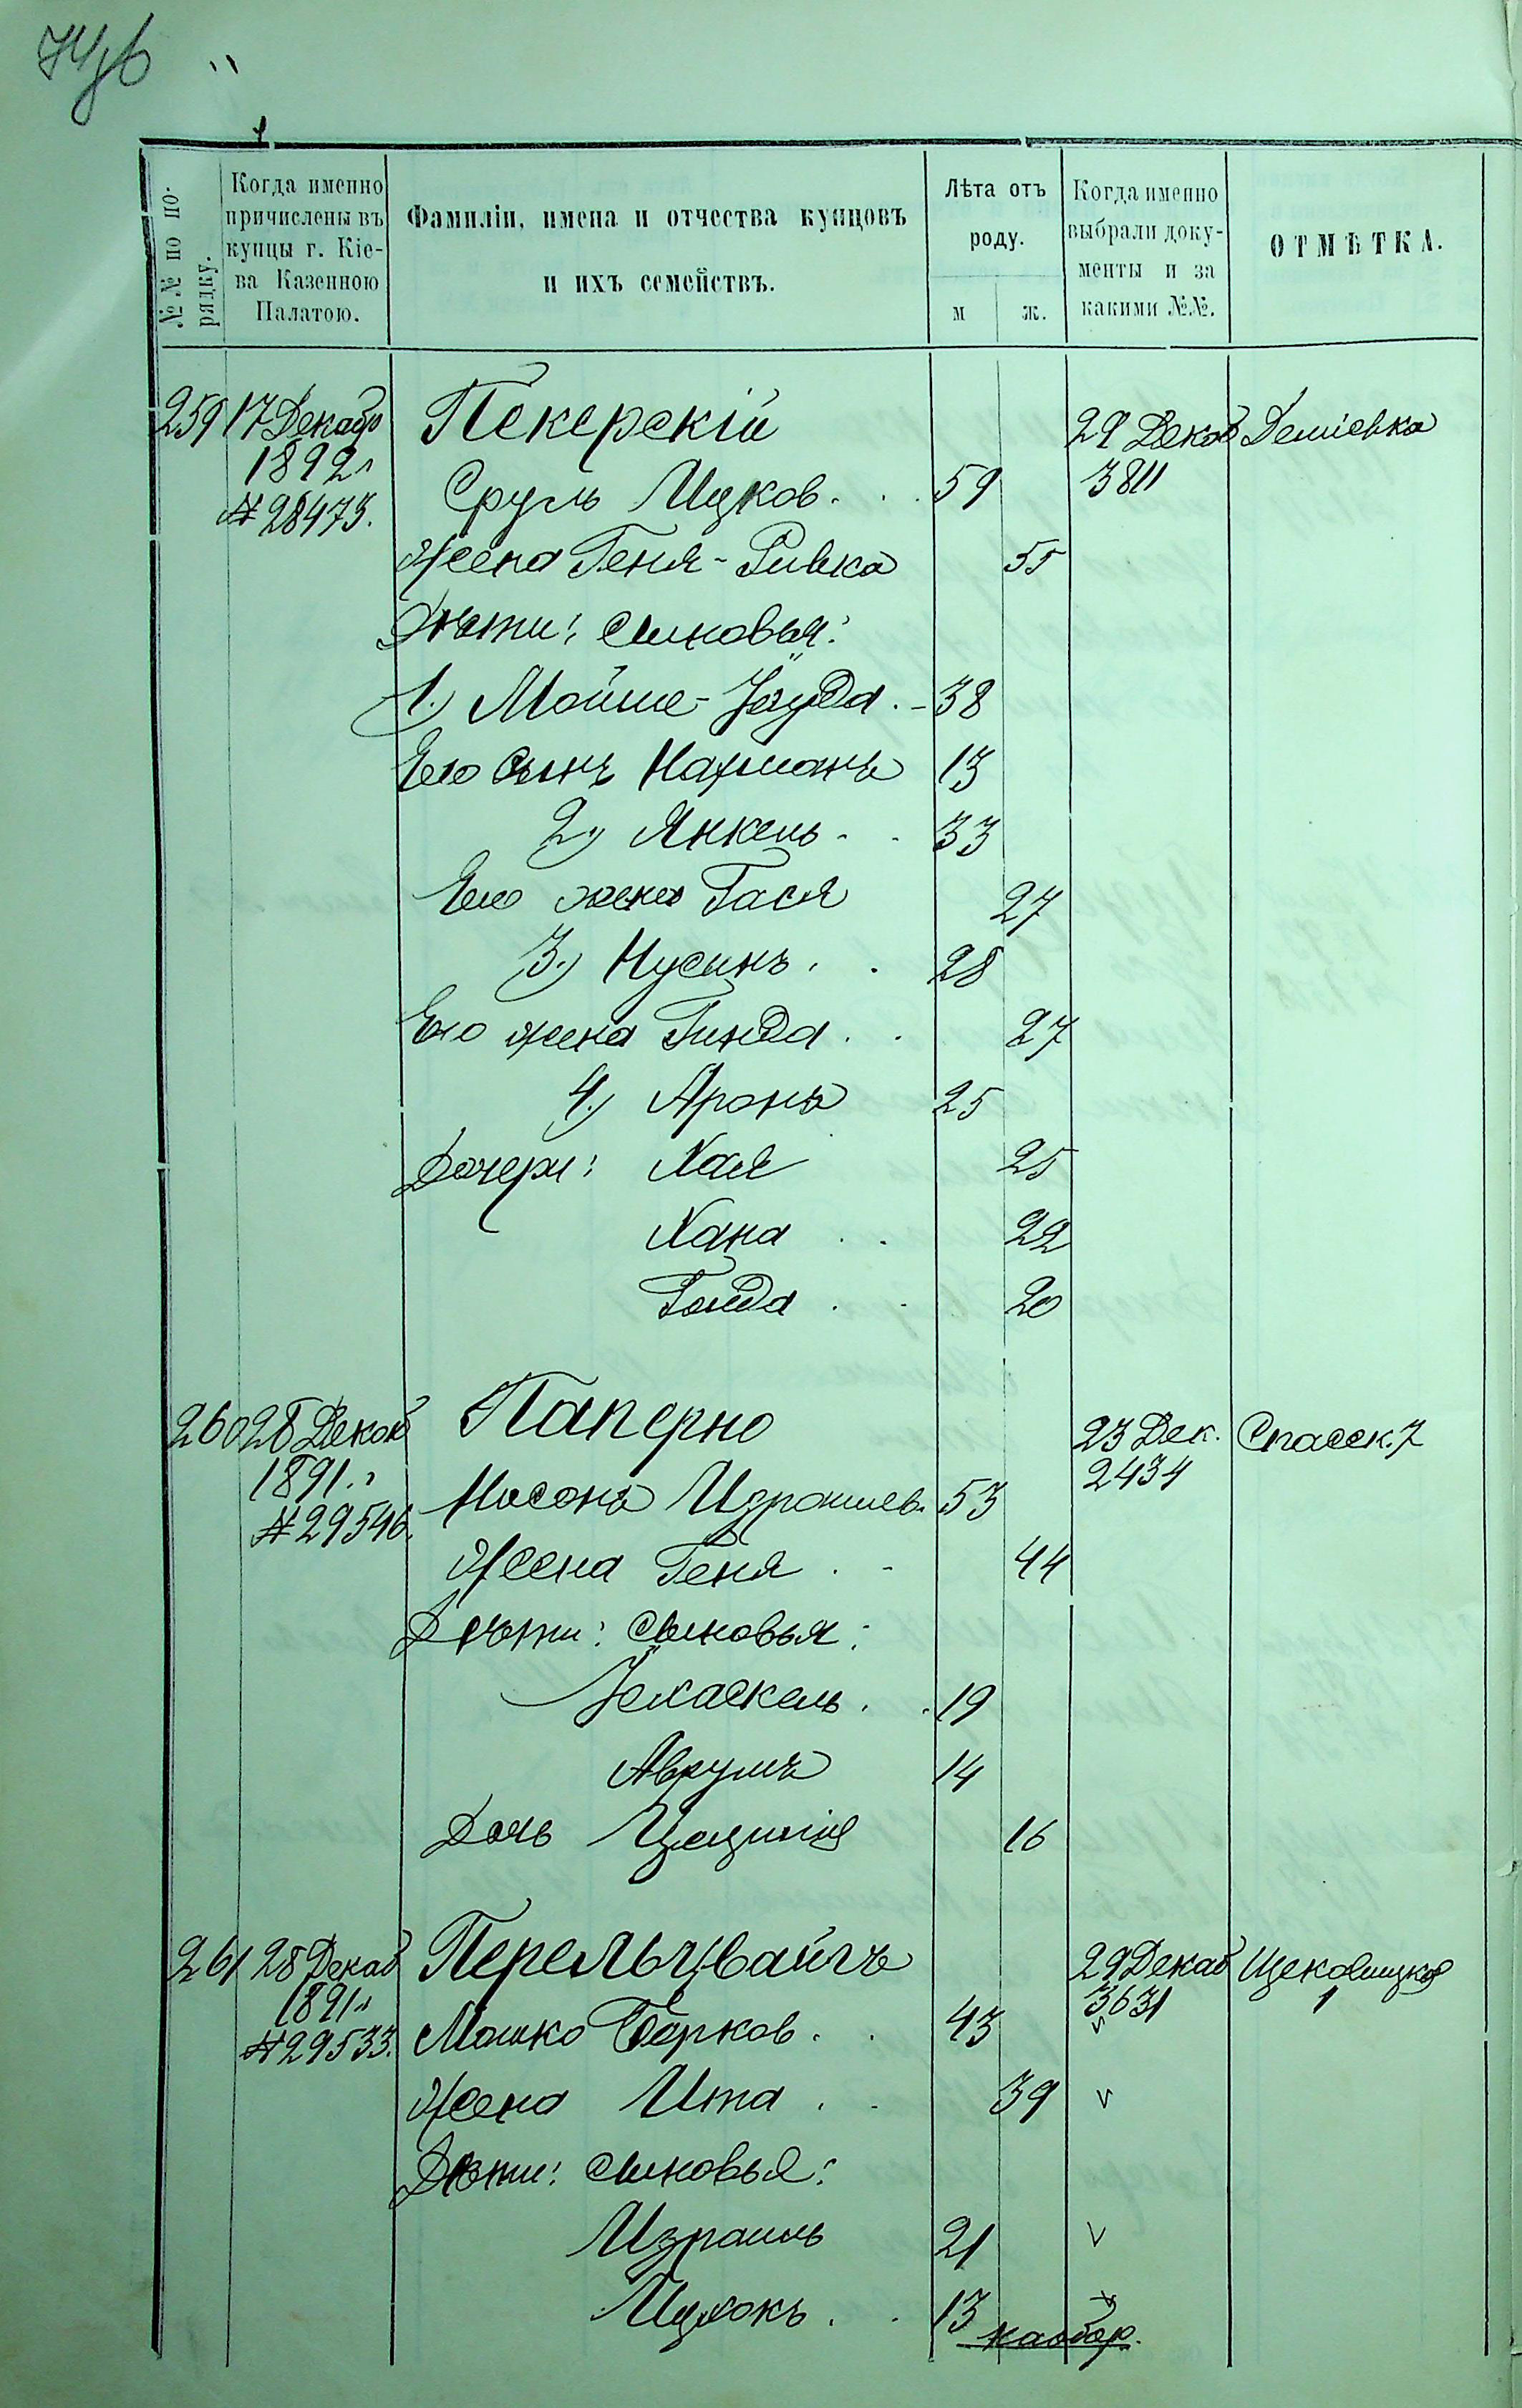 №№ по по-
рядку.
Когда именно
причислены въ
купцы г. Кіе-
ва Казенною
Палатою.
Фамиліи, имена и отчества купцовъ
и ихъ семействъ.
Лѣта отъ
роду.
м ж.
Когда именно
выбрали доку-
менты и за
какими №№.
ОТМѢТКА.
259 17 Декабр Пекерскій 29 Декаб Деміевка
1892 г
№ 28473. Сруль Ицков. 59 3811
Жена Геня-Ривка 55
Дѣти: сыновья:
1.) Мойше-Іуда 38
Его сынъ Нахманъ 13
2.) Янкель 33
Его жена Гася 27
3.) Нусинъ 28
Его жена Гинда 27
4.) Аронъ 25
Дочери: Хая 25
Хана 22
Голда 20
260 28 Декаб Паперно 23 Дек. Спасск. 7
1891 г
№ 29546. Носонъ Израилев. 53 2434
Жена Геня 44
Дѣти: сыновья:
Іехаскель 19
Аврумъ 14
Дочь 16
261 28 Декаб Перельцвайгъ 29 Декаб Щековицкая
1891 г 3631 1
№ 29533. Мошко Борков. 43
Жена Ита 39
Дѣти: сыновья:
Израиль 21
Ицхокъ 13
наобор.